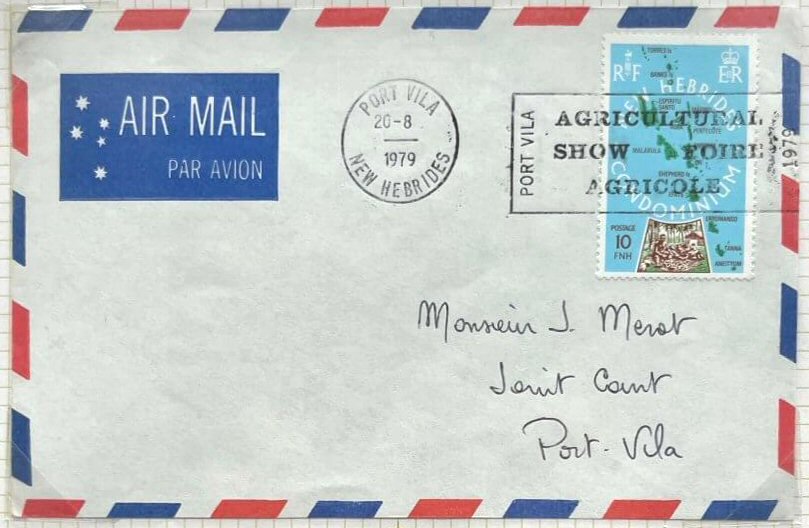 AIR MAIL
PAR AVION
PORT VILA
20-8
1979
NEW HEBRIDES
PORT VILA
AGRICULTURAL
SHOW FOIRE
AGRICOLE
1979
RF EIIR
TORRES Is
BANKS Is
NEW HEBRIDES
ESPIRITU
SANTO
PENTECÔTE
MALAKULA
SHEPHERD Is
CONDOMINIUM
ERROMANGO
TANNA
ANEITYUM
POSTAGE
10
FNH
Monsieur J. Merot
Joint Court
Port-Vila